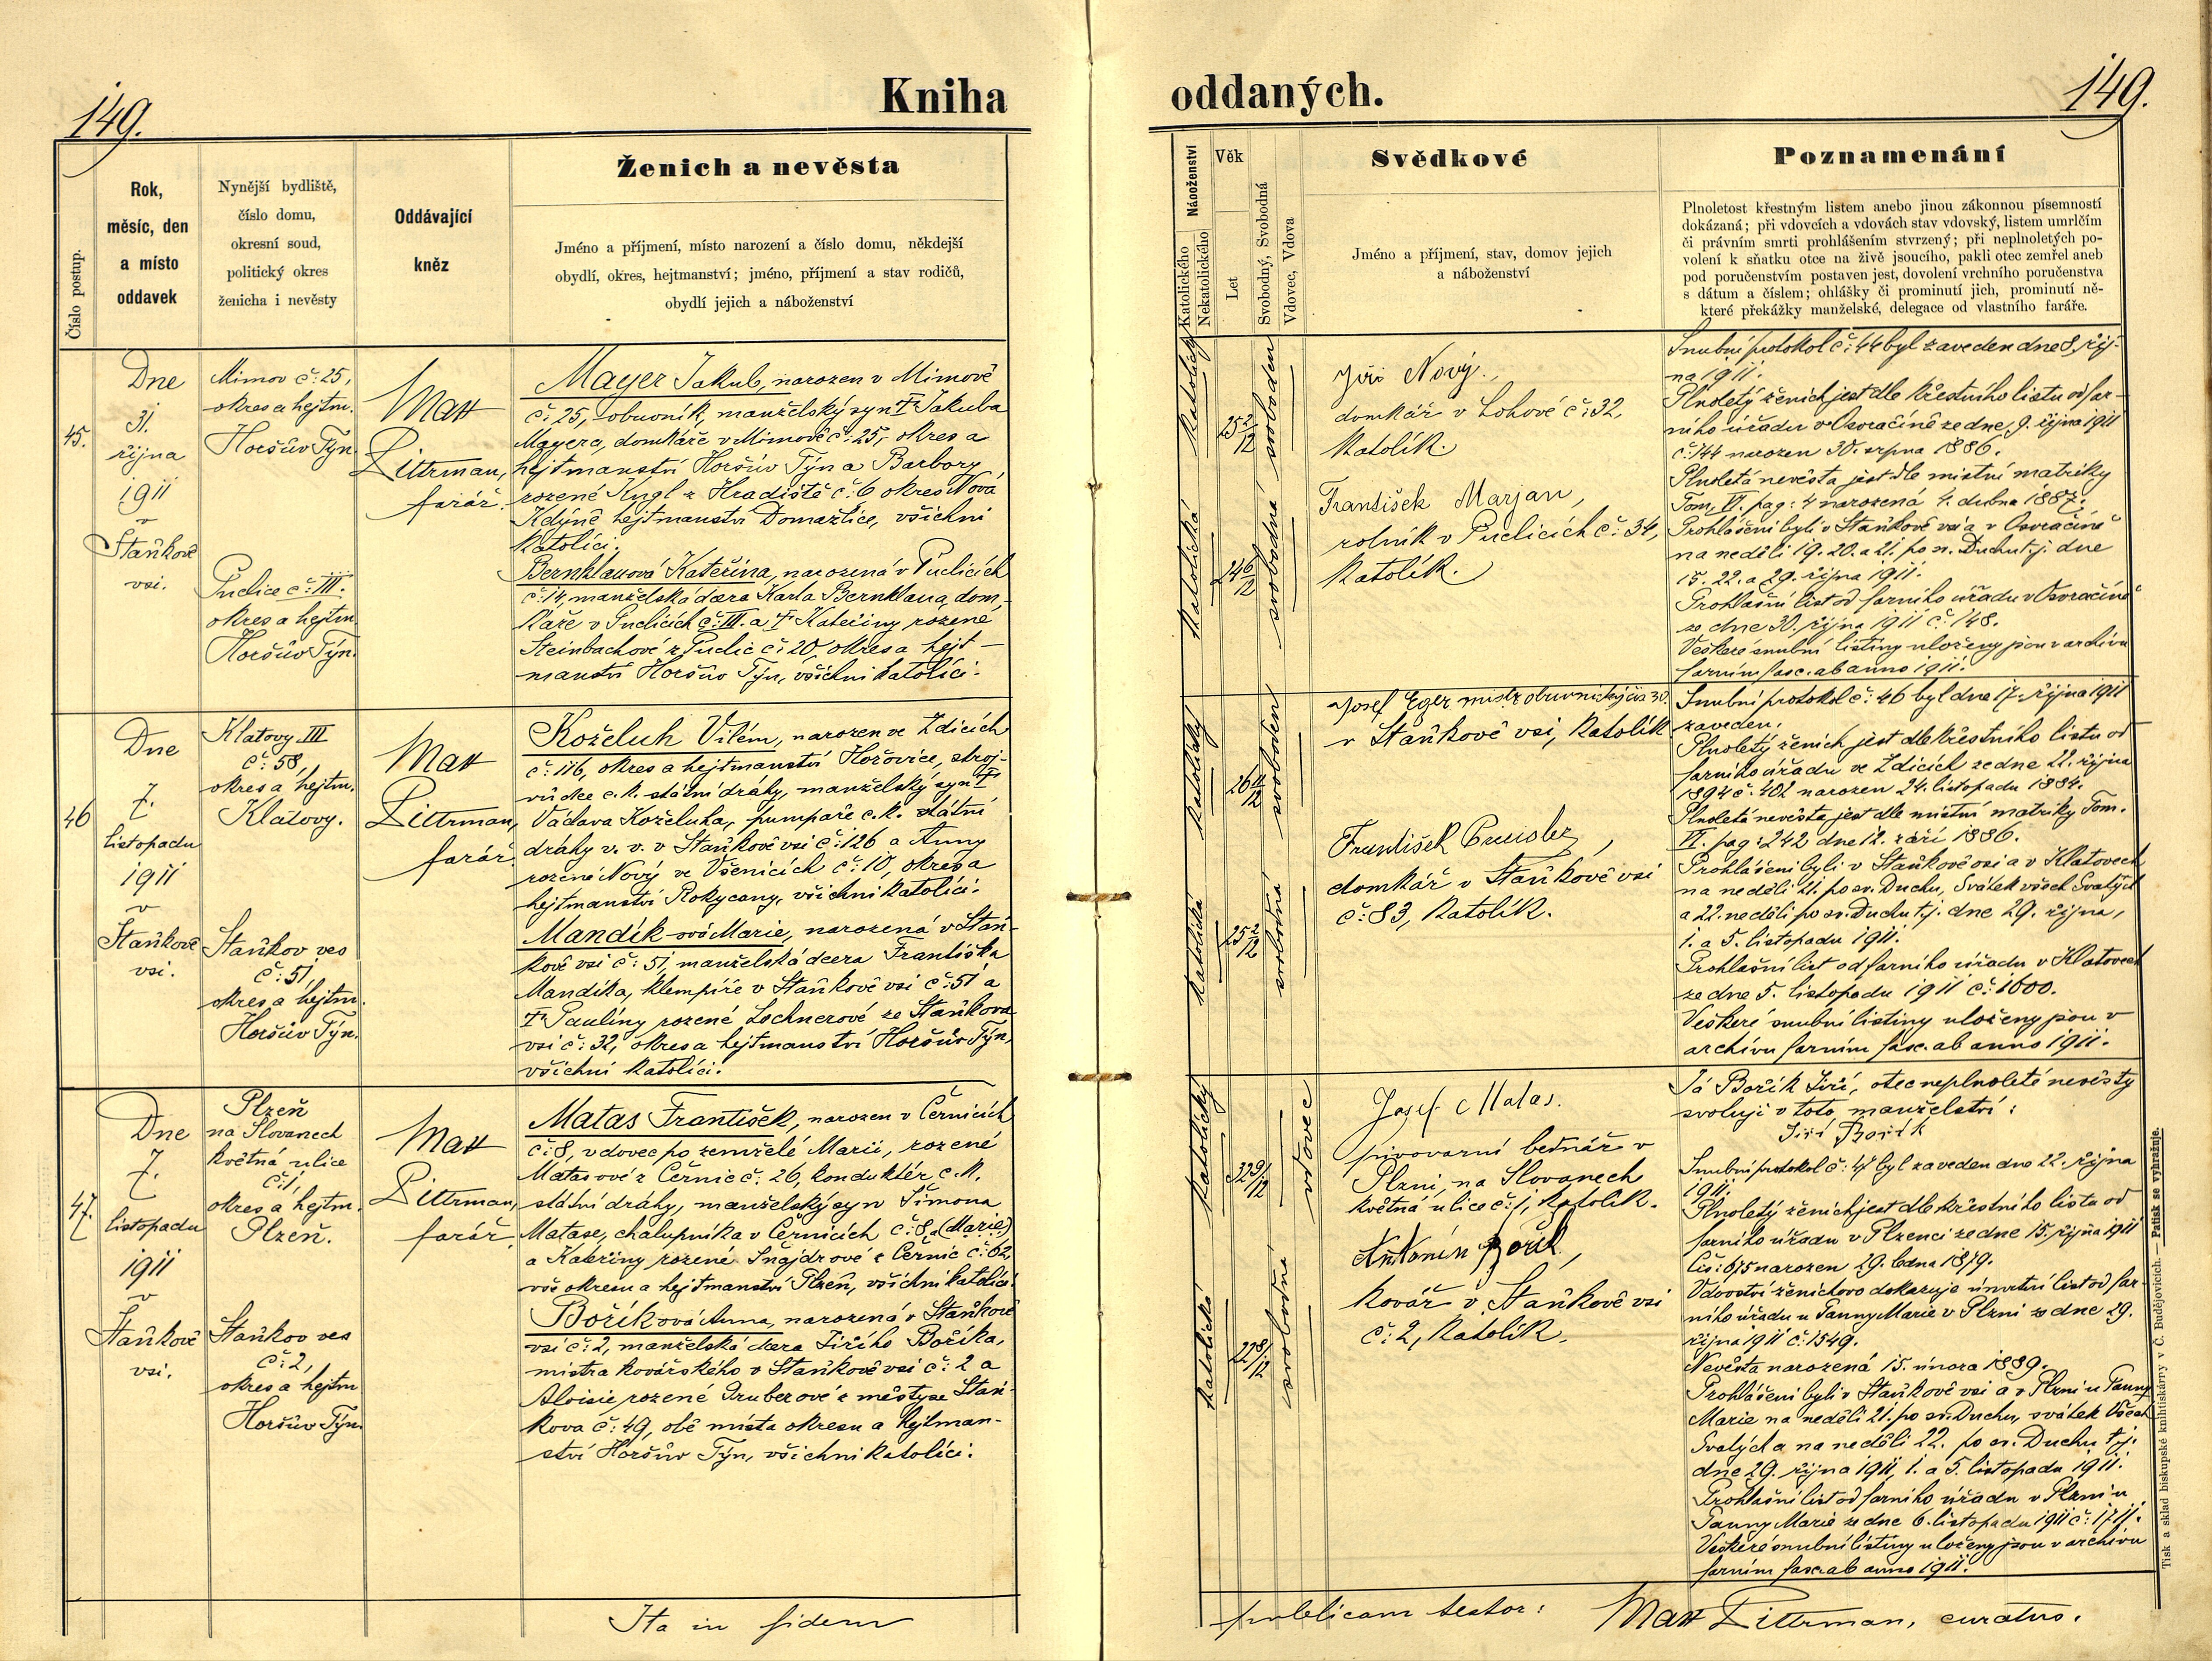 149.
Kniha
Číslo postup.
Rok,
měsíc, den
a místo
oddavek
Nynější bydliště,
číslo domu,
okresní soud,
politický okres
ženicha i nevěsty
Oddávající
kněz
Ženich a nevěsta
Jméno a příjmení, místo narození a číslo domu, někdejší
obydlí, okres, hejtmanství; jméno, příjmení a stav rodičů,
obydlí jejich a náboženství
45.
Dne
31.
října
1911
v
Staňkově
vsi.
Mimov č: 25,
okres a hejtm.
Horšův Týn.
Puclice č: 111.
okres a hejtm
Horšův Týn.
Matt
Littrman,
farář.
Mayer Jakub, narozen v Mimově
č: 25, obuvník, manželský syn † Jakuba
Mayera, domkáře v Mimově č: 25, okres a
hejtmanství Horšův Týn a Barbory
rozené Kngl z Hradiště č: 6 okres Nová
Kdýně hejtmanství Domažlice, všichni
katolíci.
Bernklauová Kateřina, narozená v Puclicích
č: 14 manželská dcera Karla Bernklaua, dom-
káře v Puclicích č: 111. a † Kateřiny rozené
Steinbachové z Puclic č: 20, okres a hejt-
manství Horšův Týn, všichni katolíci.
46
Dne
7.
listopadu
1911
v
Staňkově
vsi.
Klatovy III
č: 58,
okres a hejtm.
Klatovy.
Staňkov ves
č: 51,
okres a hejtm.
Horšův Týn.
Matt
Littrman,
farář.
Koželuh Vilém, narozen ve Zdicích
č: 116, okres a hejtmanství Hořovice, stroj-
vůdce c. k. státní dráhy, manželský syn †
Václava Koželuha, pumpaře c. k. státní
dráhy v. v. v Staňkově vsi č: 126 a Anny
rozené Nový ve Všenicích č: 10, okres a
hejtmanství Rokycany, všichni katolíci.
Mandík-ová Marie, narozená v Staň-
kově vsi č: 51, manželská dcera Františka
Mandíka, klempíře v Staňkově vsi č: 51 a
† Paulíny rozené Lochnerové ze Staňkova
vsi č: 32, okres a hejtmanství Horšův Týn,
všichni katolíci.
47.
Dne
7.
listopadu
1911
v
Staňkově
vsi.
Plzeň
na Slovanech
květná ulice
č: 1,
okres a hejtm.
Plzeň.
Staňkov ves
č: 2,
okres a hejtm
Horšův Týn.
Matt
Littrman,
farář.
Matas František, narozen v Černicích
č: 8, vdovec po zemřelé Marii, rozené
Matasové z Černic č. 26, konduktér c. k.
státní dráhy, manželský syn Šimona
Matase, chalupníka v Černicích č: 8, (Marie)
a Kateřiny rozené Šnajdrové z Černic č: 62,
vše okresu a hejtmanství Plzeň, všichni katolíci.
Boříková Anna, narozená v Staňkově
vsi č: 2, manželská dcera Jiřího Boříka,
mistra kovářského v Staňkově vsi č: 2 a
Aloisie rozené Gruberové z městyse Staň-
kova č: 49, obě místa okresu a hejtman-
ství Horšův Týn, všichni katolíci.
Ita in fidem
149.
oddaných.
Náboženství
Katolického
Nekatolického
Věk
Let
Svobodný, Svobodná
Vdovec, Vdova
Svědkové
Jméno a příjmení, stav, domov jejich
a náboženství
Poznamenání
Plnoletost křestným listem anebo jinou zákonnou písemností
dokázaná; při vdovcích a vdovách stav vdovský, listem umrlčím
či právním smrti prohlášením stvrzený; při neplnoletých po-
volení k sňatku otce na živě jsoucího, pakli otec zemřel aneb
pod poručenstvím postaven jest, dovolení vrchního poručenstva
s dátum a číslem; ohlášky či prominutí jich, prominutí ně-
které překážky manželské, delegace od vlastního faráře.
katolický
25 2/12
svoboden
katolická
24 6/12
svobodná
Jiří Nový,
domkář v Lohově č: 32,
katolík.
František Marjan,
rolník v Puclicích č: 34,
katolík.
Snubní protokol č: 44 byl zaveden dne 8. říj-
na 1911.
Plnoletý ženich jest dle křestního listu od far-
ního úřadu v Osvračíně ze dne 9. října 1911
č: 144 narozen 30. srpna 1886.
Plnoletá nevěsta jest dle místní matriky
Tom. VI. pag: 4 narozená 4. dubna 1887.
Prohlášeni byli v Staňkově vsi a v Osvračíně
na neděli 19. 20. a 21. po sv. Duchu t. j. dne
15. 22. a 29. října 1911.
Prohlašní list od farního úřadu v Osvračíně
ze dne 30. října 1911 č: 148.
Veškeré snubní listiny uloženy jsou v archivu
farním fasc. ab anno 1911.
katolický
26 11/12
svoboden
katolická
25 2/12
svobodná
Josef Eger mistr obuvnický čís 30.
v Staňkově vsi, katolík
František
domkář v Staňkově vsi
č: 83, katolík.
Snubní protokol č: 46 byl dne 17. října 1911
zaveden.
Plnoletý ženich jest dle křestního listu od
farního úřadu ve Zdicích ze dne 22. října
1894 č: 402 narozen 24. listopadu 1884.
Plnoletá nevěsta jest dle místní matriky Tom.
VI. pag: 242 dne 12. září 1886.
Prohlášeni byli v Staňkově vsi a v Klatovech
na neděli 21. po sv. Duchu, Svátek všech Svatých
a 22. neděli po sv. Duchu t. j. dne 29. října,
1. a 5. listopadu 1911.
Prohlašní list od farního úřadu v Klatovech
ze dne 5. listopadu 1911 č: 1000.
Veškeré snubní listiny uloženy jsou v
archivu farním fasc. ab anno 1911.
katolický
32 9/12
vdovec
katolická
22 8/12
svobodná
Josef Matas.
pivovarní bednář v
Plzni, na Slovanech
květná ulice č: 1, katolík.
Antonín Bořik,
kovář v Staňkově vsi
č: 2, katolík.
Já Bořík Jiří, otec neplnoleté nevěsty
svoluji v toto manželství:
Jiří Bořík
Snubní protokol č: 47 byl zaveden dne 22. října
1911.
Plnoletý ženich jest dle křestního listu od
farního úřadu v Plzenci ze dne 15. října 1911
čís: 675 narozen 29. ledna 1879.
Vdovství ženichovo dokazuje úmrtní list od far-
ního úřadu u Panny Marie v Plzni ze dne 29.
října 1911 č: 1549.
Nevěsta narozená 15. února 1889.
Prohlášeni byli v Staňkově vsi a v Plzni u Panny
Marie na neděli 21. po sv. Duchu, svátek Všech
Svatých a na neděli 22. po sv. Duchu t. j.
dne 29. října 1911, 1. a 5. listopadu 1911.
Prohlašní list od farního úřadu v Plzni u
Panny Marie ze dne 6. listopadu 1911 č: 1711.
Veškeré snubní listiny uloženy jsou v archivu
farním fasc. ab anno 1911.
publicam testor: Matt Littrman, curatus.
Tisk a sklad biskupské knihtiskárny v Č. Budějovicích. — Patisk se vyhražuje.